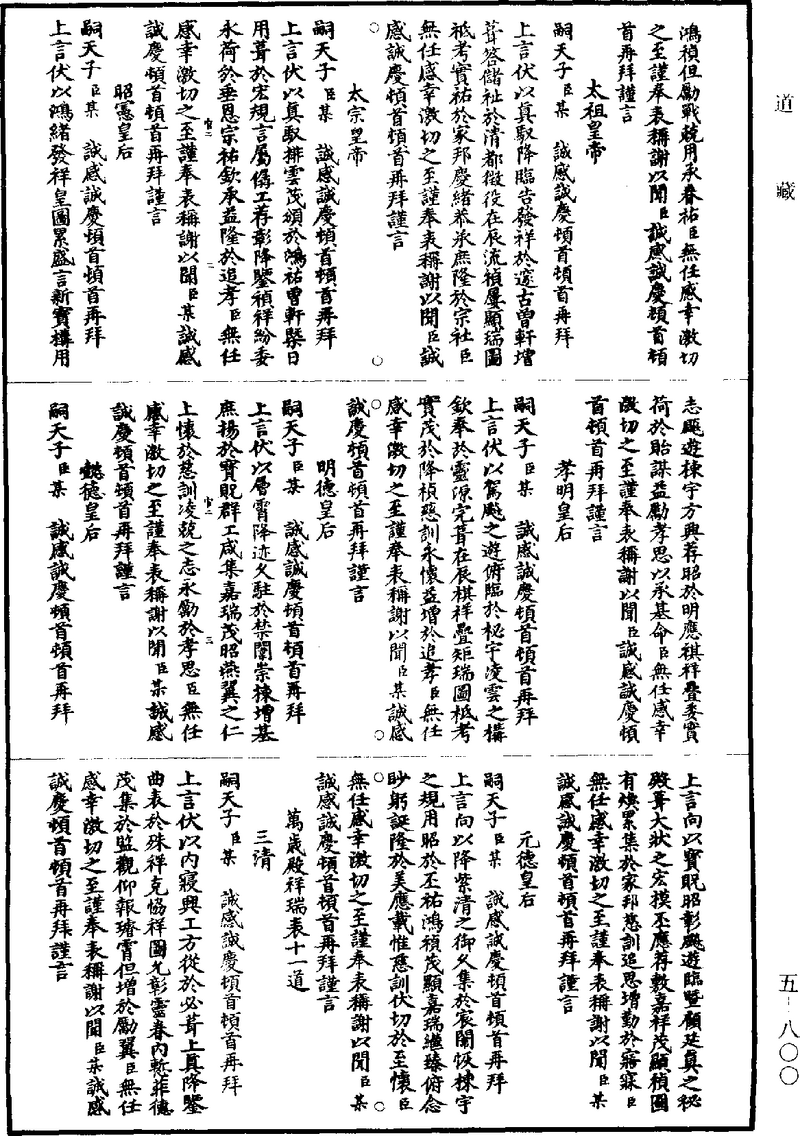 道藏
鴻禎但勵戰兢用承眷祐臣無任感幸激切
之至謹奉表稱謝以聞臣誠感誠慶頓首頓
首再拜謹言
太祖皇帝
嗣天子臣某 誠感誠慶頓首頓首再拜
上言伏以真馭降臨告發祥於邃古曾軒增
葺答儲祉於清都徵役在辰流禎屢顯瑞圖
祗考實祐於家邦慶緒恭承庶隆於宗社臣
無任感幸激切之至謹奉表稱謝以聞臣誠
感誠慶頓首頓首再拜謹言
太宗皇帝
嗣天子臣某 誠感誠慶頓首頓首再拜
上言伏以真馭排雲茂頒於鴻祐曾軒槩日
用葺於宏規言屬僝工荐彰降鑒禎祥紛委
永荷於垂恩宗祐欽承益隆於追孝臣無任
感幸激切之至謹奉表稱謝以聞臣某誠感
誠慶頓首頓首再拜謹言
昭憲皇后
嗣天子臣某 誠感誠慶頓首頓首再拜
上言伏以鴻緒發祥皇圖累盛言新寶構用
志飈遊棟宇方興荐昭於明應祺祥疊委實
荷於貽謀益勵孝思以承基命臣無任感幸
激切之至謹奉表稱謝以聞臣誠感誠慶頓
首頓首再拜謹言
孝明皇后
嗣天子臣某 誠感誠慶頓首頓首再拜
上言伏以駕飈之遊俯臨於秘宇凌雲之構
欽奉於靈源完葺在辰棋祥疊矩瑞圖祗考
實茂於降禎慈訓永懷益增於追孝臣無任
感幸激切之至謹奉表稱謝以聞臣某誠感
誠慶頓首頓首再拜謹言
明德皇后
嗣天子臣某 誠感誠慶頓首頓首再拜
上言伏以層霄降迹久駐於禁闈崇棟增基
庶揚於寶貺群工咸集嘉瑞茂昭燕翼之仁
上懷於慈訓凌兢之志永勵於孝思臣無任
感幸激切之至謹奉表稱謝以聞臣某誠感
誠慶頓首頓首再拜謹言
懿德皇后
嗣天子臣某 誠感誠慶頓首頓首再拜
上言向以寶貺昭彰飈遊臨暨顧延真之秘
殿葺大壯之宏模丕應荐敷嘉祥茂顯禎圖
有煥累集於家邦慈訓追思增勤於寤寐臣
無任感幸激切之至謹奉表稱謝以聞臣某
誠感誠慶頓首頓首再拜謹言
元德皇后
嗣天子臣某 誠感誠慶頓首頓首再拜
上言向以降紫清之御久集於宸闈恢棟宇
之規用昭於丕祐鴻禎茂顯嘉瑞繼臻俯念
眇躬誕隆於美應載惟慈訓伏切於至懷臣
無任感幸激切之至謹奉表稱謝以聞臣某
誠感誠慶頓首頓首再拜謹言
萬歲殿祥瑞表十一道
三清
嗣天子臣某 誠感誠慶頓首頓首再拜
上言伏以內寢興工方從於必葺上真降鑒
曲表於殊祥克恊祥圖允彰靈眷內慙菲德
茂集於監觀仰報璿霄但增於勵翼臣無任
感幸激切之至謹奉表稱謝以聞臣某誠感
誠慶頓首頓首再拜謹言
五-八〇〇